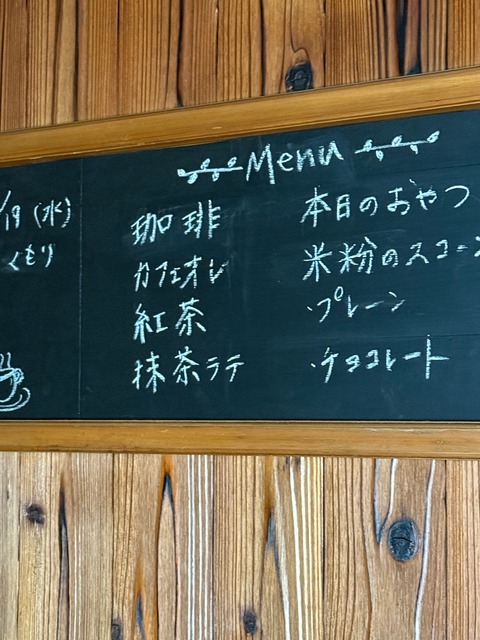 Menu
/19 (水)
くもり
珈琲
カフェオレ
紅茶
抹茶ラテ
本日のおやつ
米粉のスコーン
・プレーン
・チョコレート